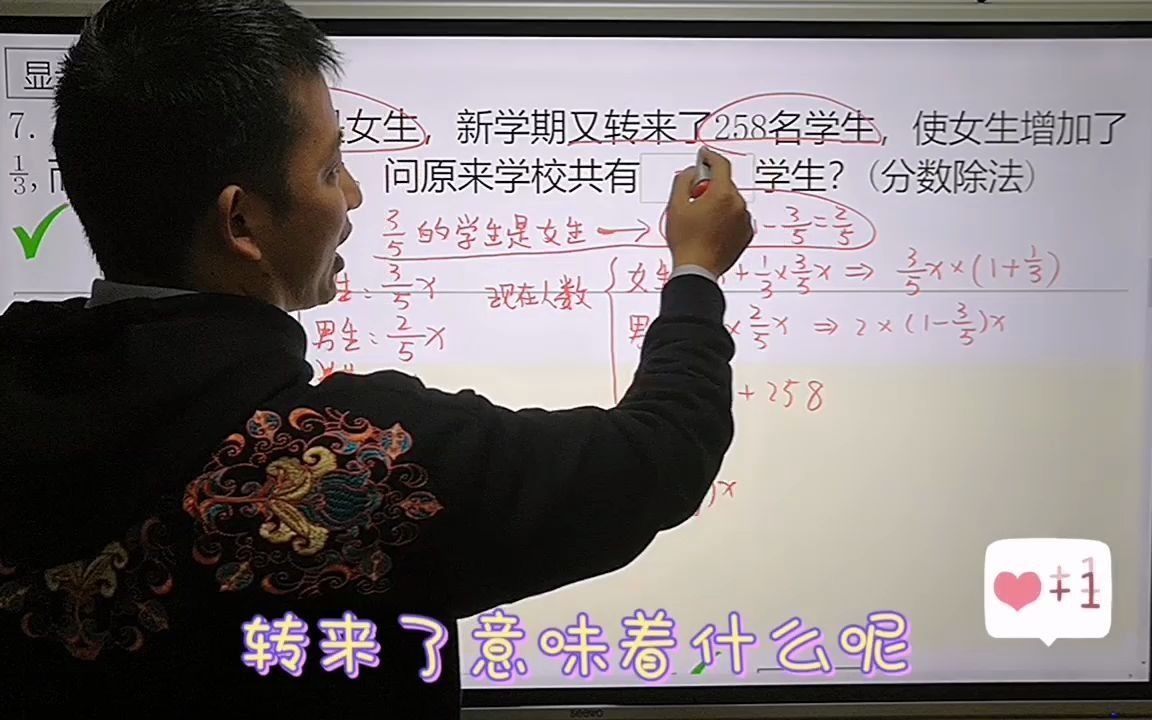 显
7. 女生，新学期又转来了258名学生，使女生增加了
1/3，而 问原来学校共有 学生？（分数除法）
3/5 的学生是女生 → 1 - 3/5 = 2/5
生：3/5 x 现在人数 女生 + 1/3 × 3/5 x ⇒ 3/5 x × (1 + 1/3)
男生：2/5 x 男 × 2/5 x ⇒ 2 × (1 - 3/5) x
+ 258
) x
+1
转来了意味着什么呢
seewo